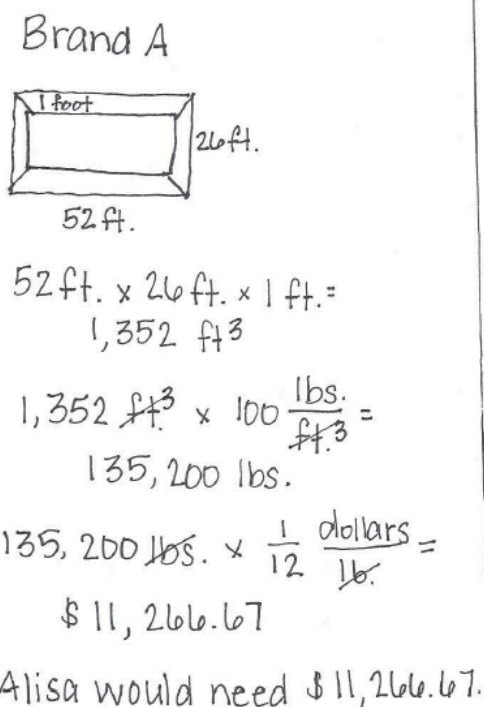 Brand A
1 foot
26ft.
52 ft.
52 ft. x 26 ft. x 1 ft. =
1,352 ft³
1,352 ft.³ x 100 lbs./ft.³ =
135,200 lbs.
135,200 lbs. x 1/12 dollars/lb. =
$11,266.67
Alisa would need $11,266.67.